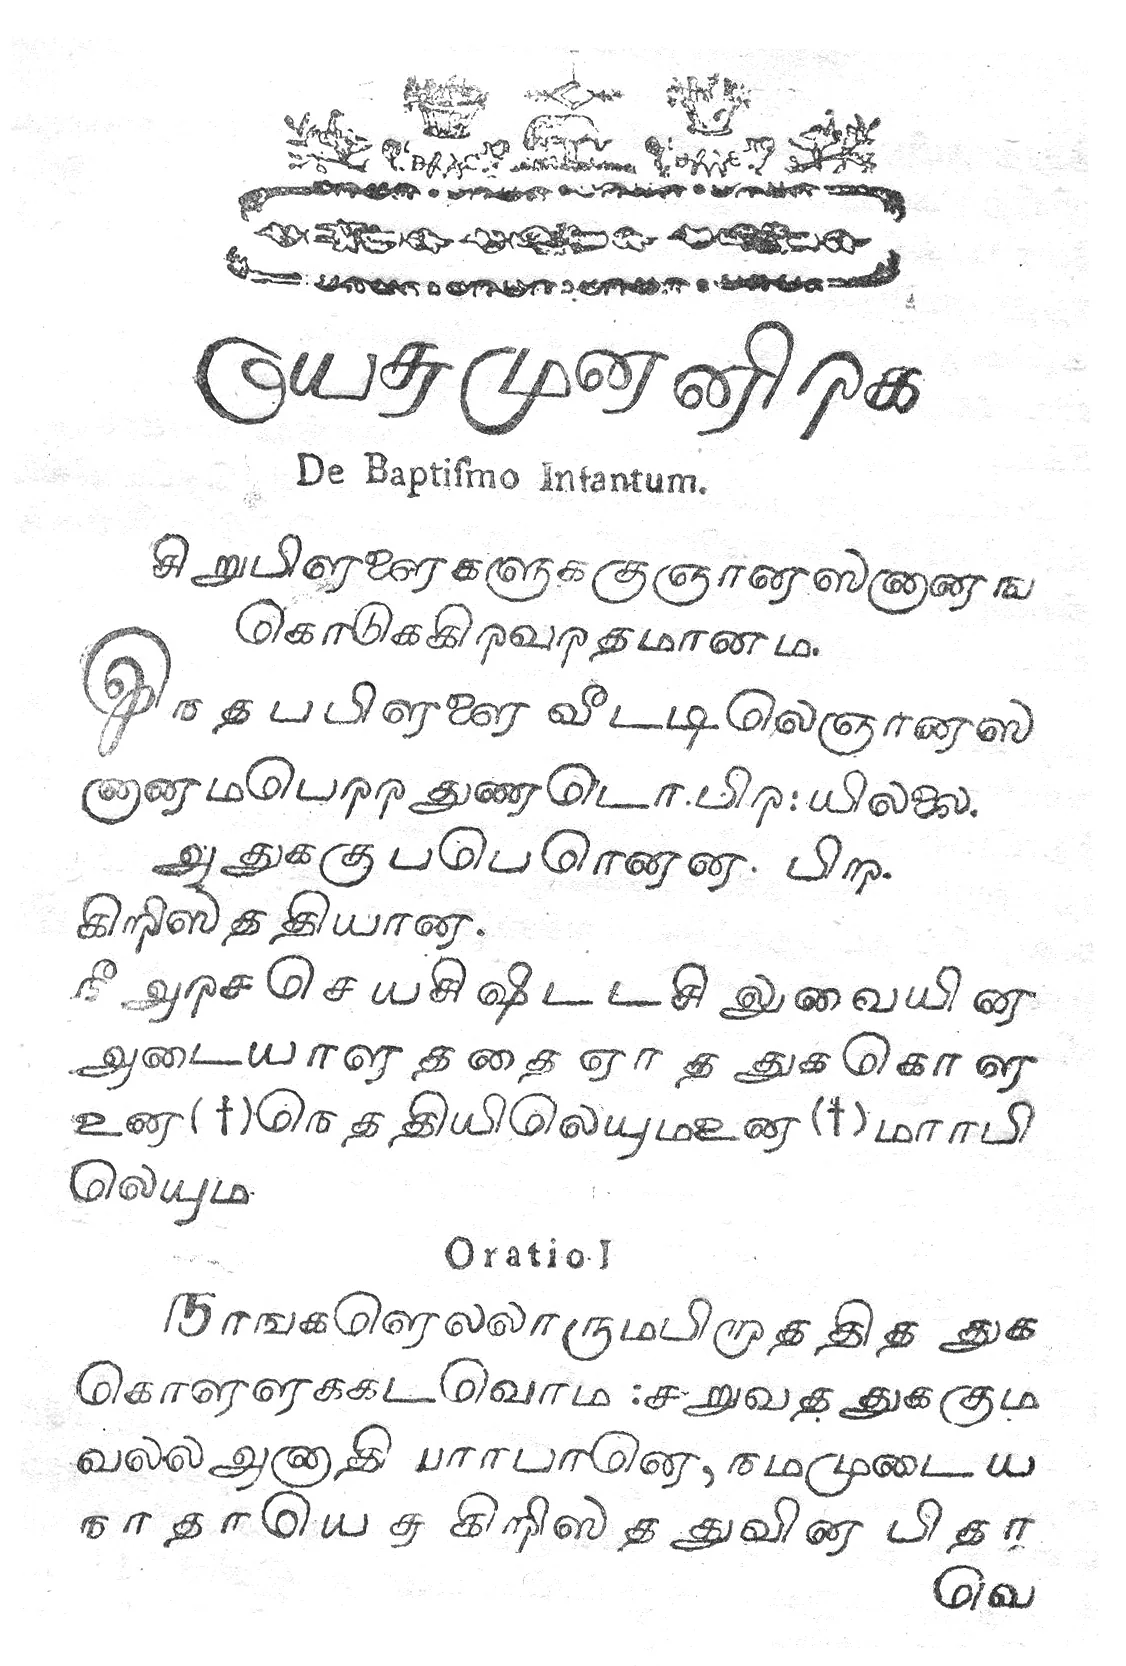 யெசுமுனனிறக
De Baptiſmo Infantum.
சிறுபிளளைகளுககுஞானஸனானங
கொடுககிறவறதமானம.
இநதபபிளளை வீடடிலெஞானஸ
னானமபெறறதுணடொ. பிற: யிலலை.
அதுககுபபெரென‌ன. பிற.
கிறிஸததியான.
நீ அரசசெயசிஷடடசிலுவையின
அடையாளததை ஏாததுககொள
உன(†)நெததியிலெயுமஉன(†)மாாபி
லெயும
Oratio I
நாஙகளெலலாருமபிறாததிதது க
கொளளககடவொம :சறுவததுககும
வலலஅனாதி பராபரனெ, நமமுடைய
நாதாயெசுகிறிஸததுவின பிதா
வெ